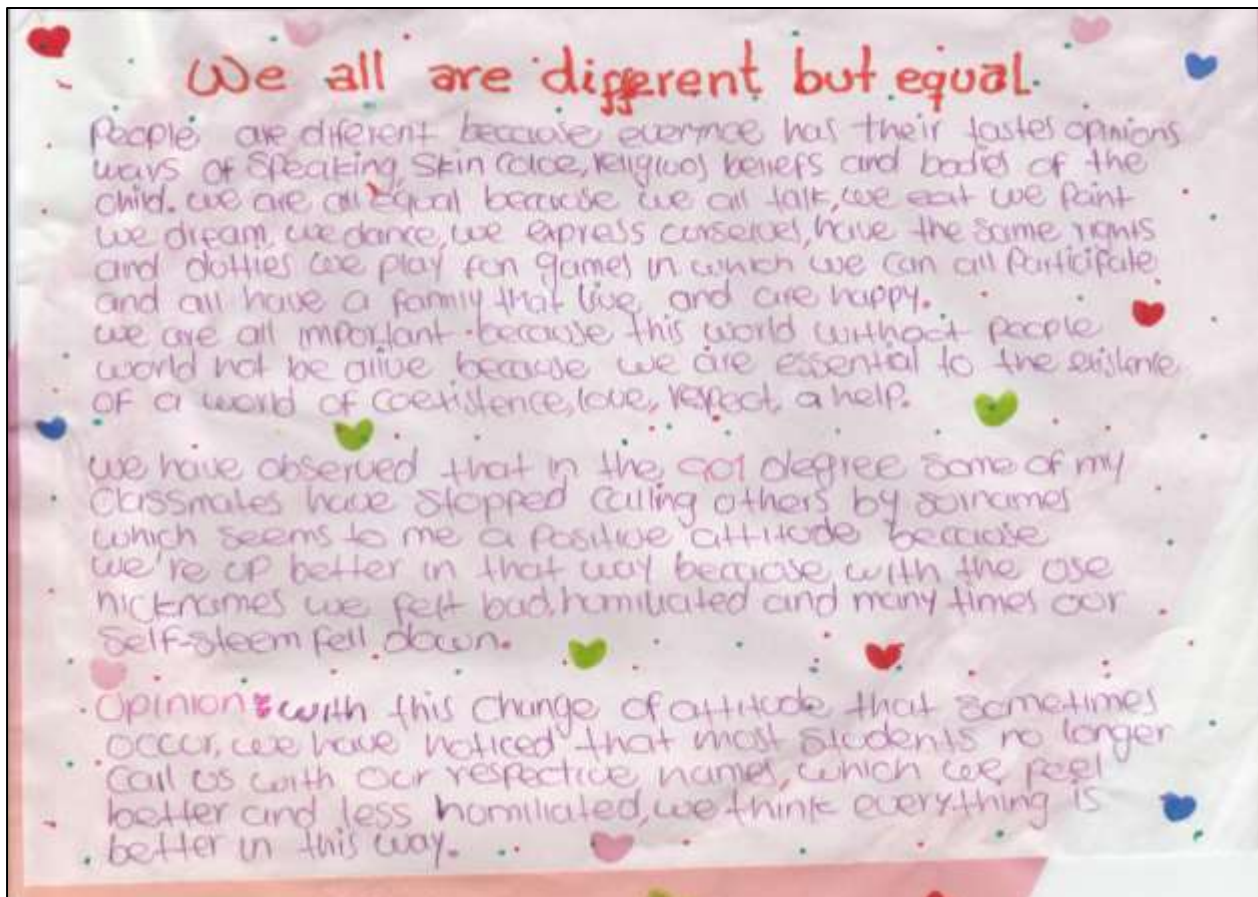 We all are different but equal.
People are diferent because everynce has their tastes opinions
ways of speaking, skin coloe, religious beliefs and bodies of the
child. we are all equal because we all talk, we eat we paint
we dream, we dance, we express ourselves, have the same rights
and dutties we play fun games in which we can all participate
and all have a family that live and are happy.
we are all important because this world without people
world not be alive because we are essential to the existence
of a world of coexistence, love, respect, a help.
we have observed that in the 901 degree some of my
classmates have stopped calling others by surnames
which seems to me a positive attitude because
we're up better in that way because with the use
nicknames we felt bad, humiliated and many times our
self-steem fell down.
Opinion: with this change of attitude that sometimes
occur, we have noticed that most students no longer
call us with our respective names, which we feel
better and less homiliated, we think everything is
better in this way.